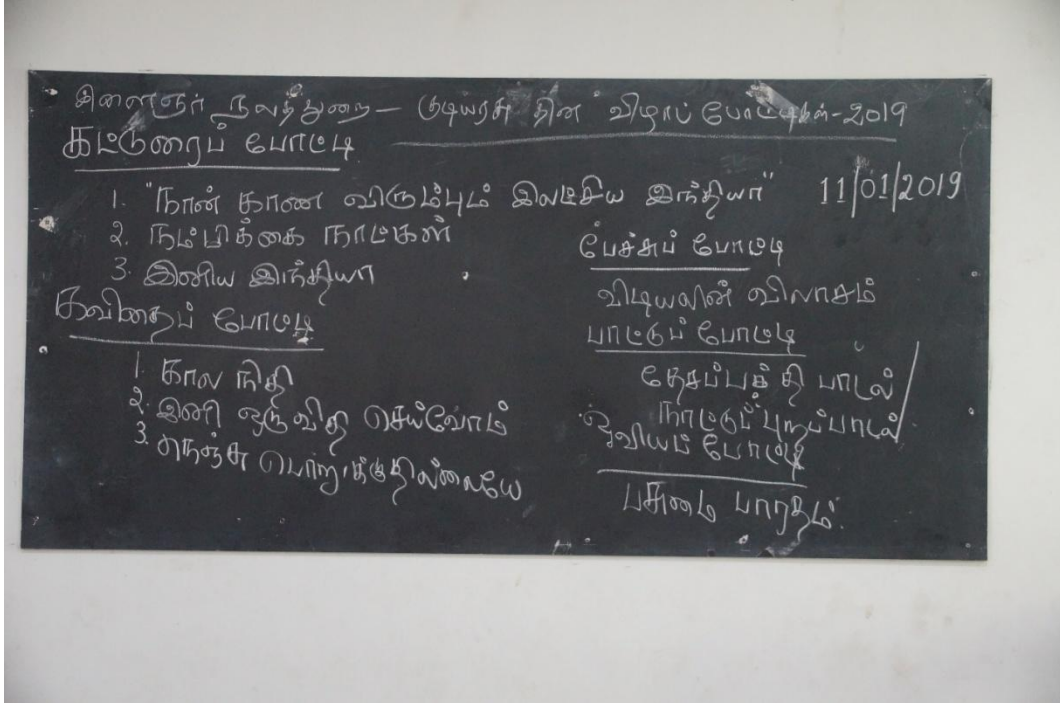 இளைஞர் நலத்துறை – குடியரசு தின விழாப் போட்டிகள்-2019
கட்டுரைப் போட்டி
11/01/2019
1. "நான் காண விரும்பும் இலட்சிய இந்தியா"
2. நம்பிக்கை நாட்கள்
3. இனிய இந்தியா
கவிதைப் போட்டி
1. கால நிதி
2. இனி ஒரு விதி செய்வோம்
3. நெஞ்சு பொறுக்குதில்லையே
பேச்சுப் போட்டி
விடியலின் விலாசம்
பாட்டுப் போட்டி
தேசப்பக்தி பாடல் /
நாட்டுப்புறப்பாடல்
ஓவியப் போட்டி
பசுமை பாரதம்.